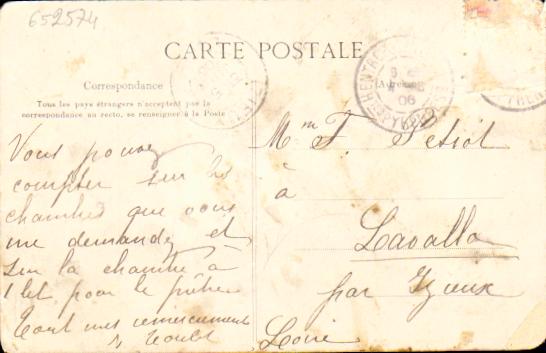 652574
CARTE POSTALE
Correspondance
Tous les pays étrangers n'acceptent pas la
correspondance au recto, se renseigner à la Poste
(Adresse)
Vous pouvez
compter sur les
chambres que vous
me demandez et
sur la chambre à
1 lit pour le prêtre
Tout mes remerciements
Mme F. Petiot
à
Lavalla
par Izieux
Loire
06